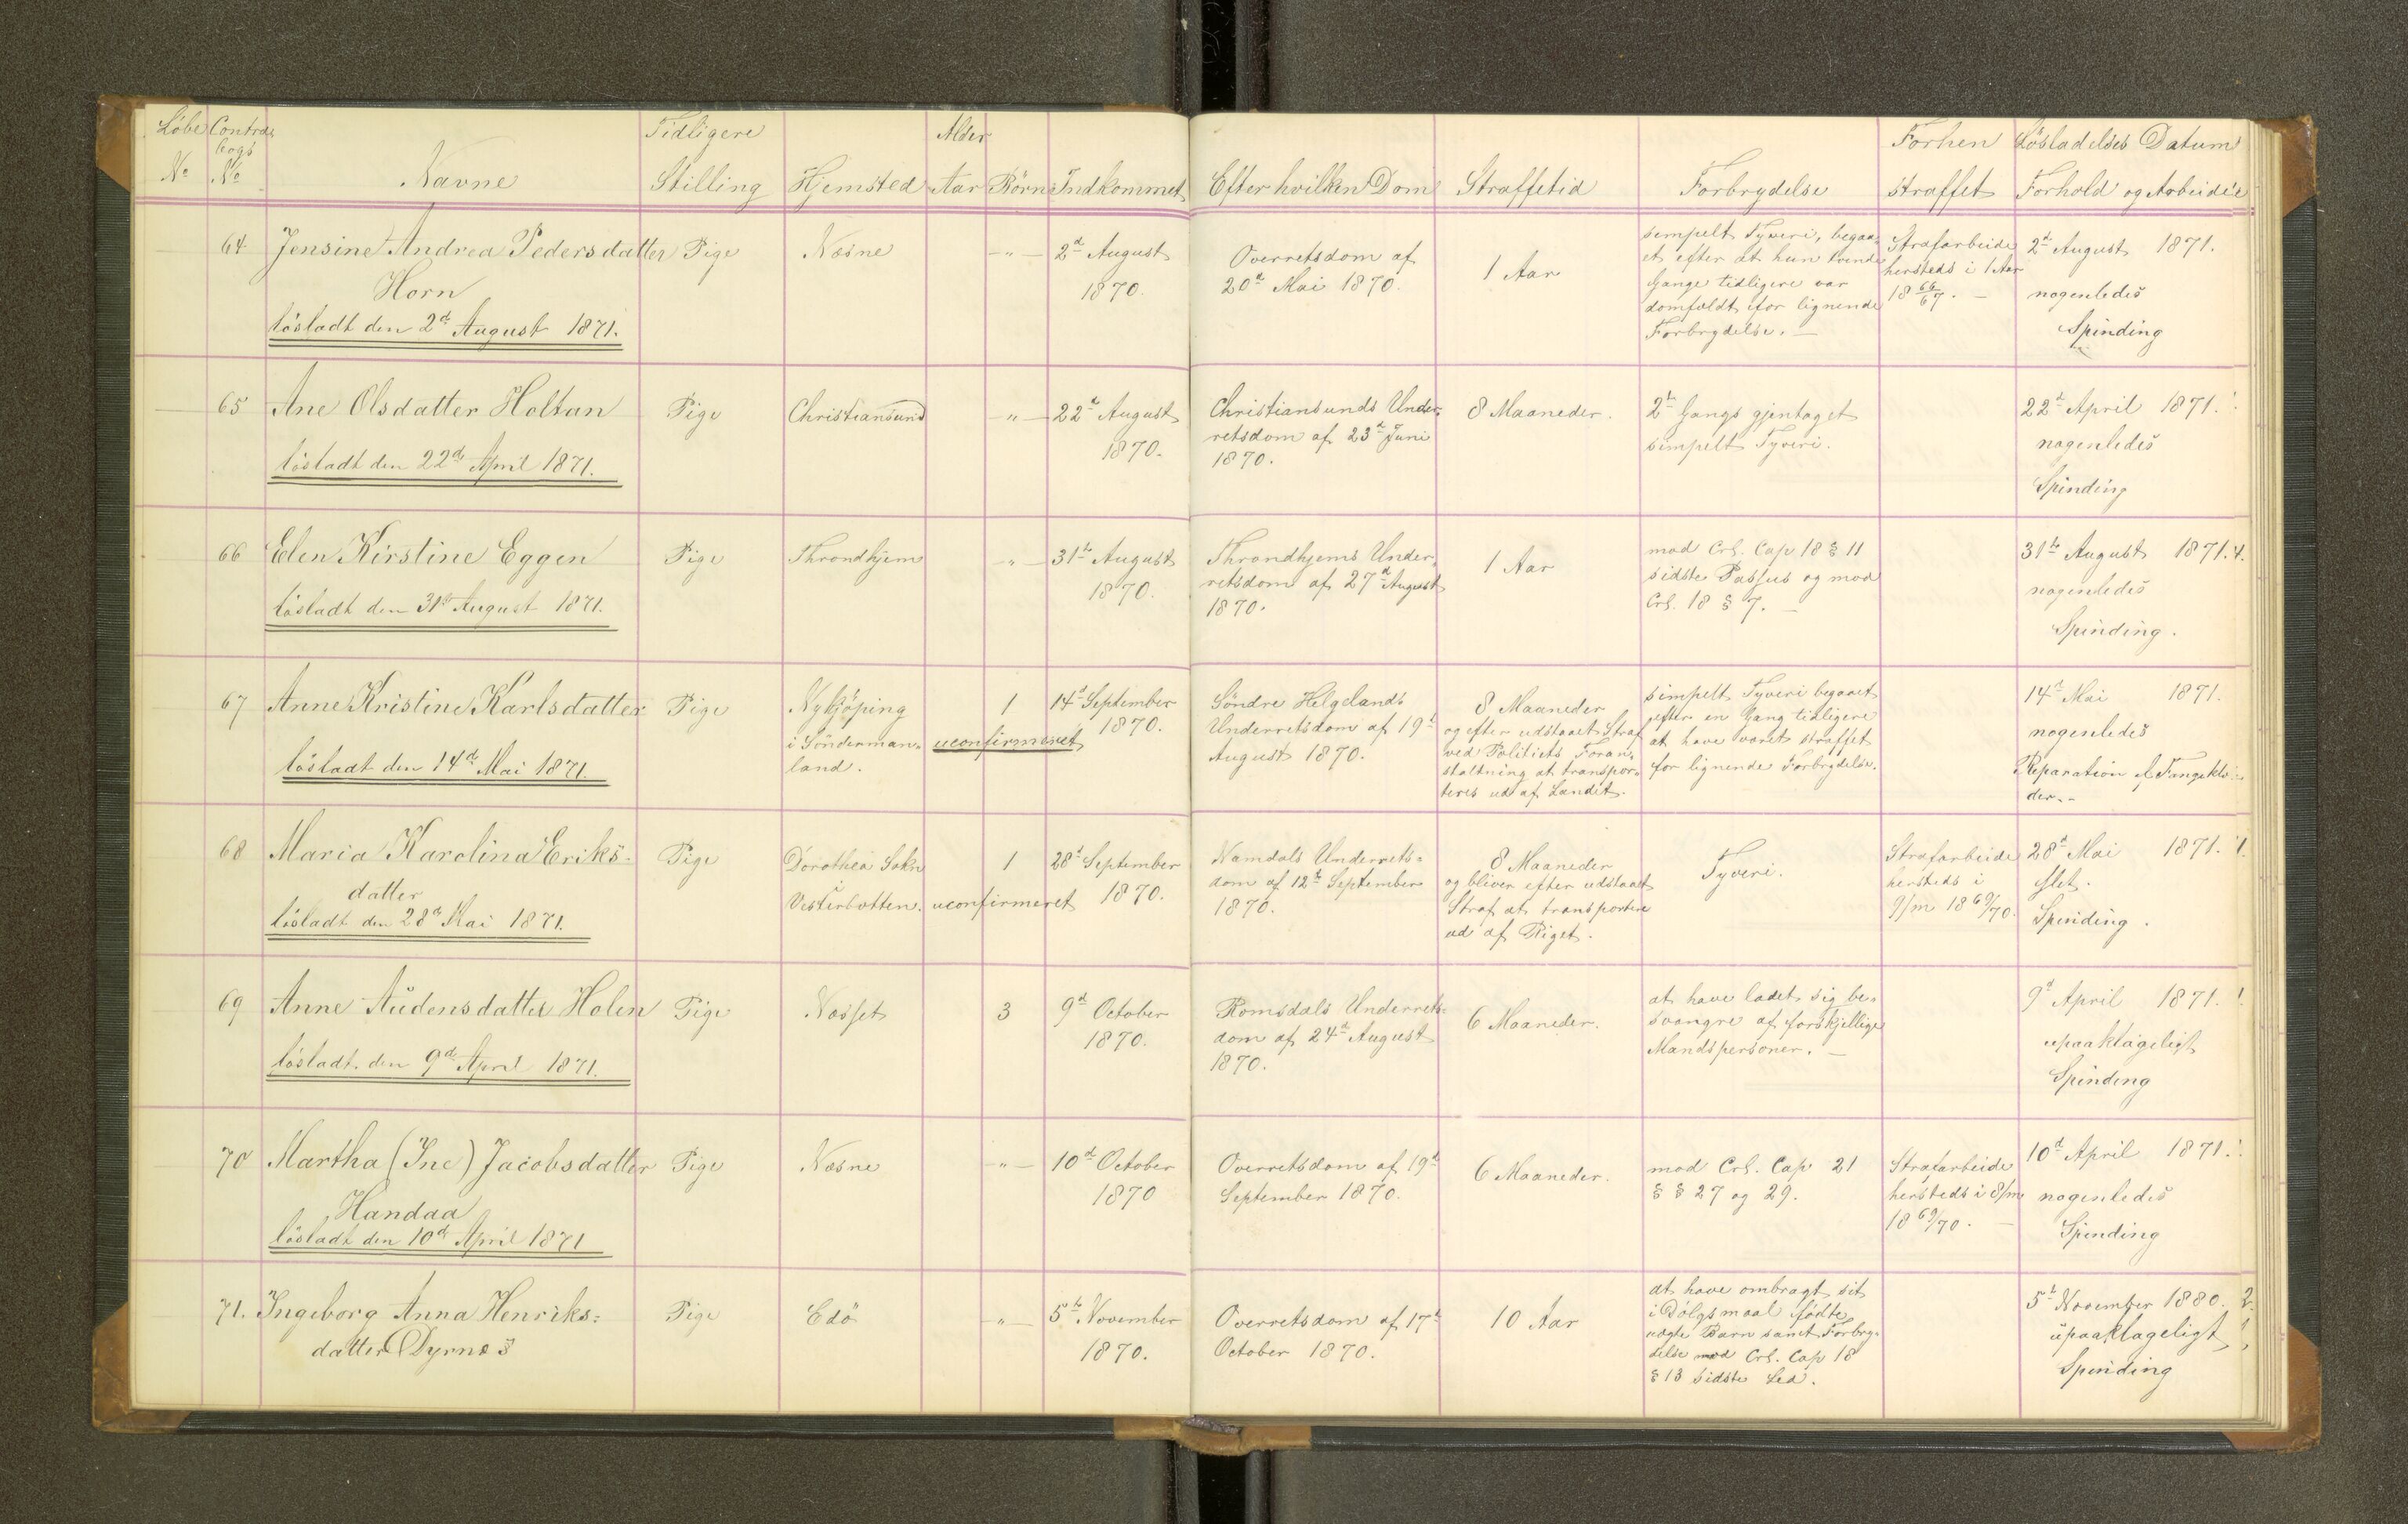 Löbe Contra Tidligere Alder Forhen Lösladelses Datum
bogs
No No Navne Stilling Hjemsted Aar Börn Indkommet Efter hvilken Dom Straffetid Forbrydelse straffet Forhold og Arbeide
64 Jensine Andrea Pedersdatter Pige Næsne -"- 2d August
Horn 1870.
lösladt den 2d August 1871.
Overretsdom af
20d Mai 1870.
1 Aar
simpelt Tyveri, begaa-
et efter at hun tvende
Gange tidligere var
domfældt for lignende
Forbrydelse. —
Strafarbeide
hersteds i 1 Aar
18 66/67. —
2d August 1871.
nogenledes
Spinding
65 Ane Olsdatter Holtan Pige Christiansund -"- 22d August
1870.
lösladt den 22d April 1871.
Christiansunds Under-
retsdom af 23d Juni
1870.
8 Maaneder.
2d Gangs gjentaget
simpelt Tyveri.
22d April 1871.
nogenledes
Spinding
66 Elen Kirstine Eggen Pige Throndhjem -"- 31te August
1870.
lösladt den 31te August 1871.
Throndhjems Under-
retsdom af 27d August
1870.
1 Aar
mod Crl. Cap 18 § 11
sidste Passus og mod
Crl. 18 § 7. —
31te August 1871.
nogenledes
Spinding.
67 Anne Kristine Karlsdatter Pige Nykjöping 1 14d September
i Sönderman- uconfirmeret 1870.
land.
lösladt den 14d Mai 1871.
Söndre Helgelands
Underretsdom af 19d
August 1870.
8 Maaneder
og efter udstaaet Straf
ved Politiets Foran-
staltning at transpor-
teres ud af Landet.
simpelt Tyveri begaaet
efter en Gang tidligere
at have været straffet
for lignende Forbrydelse.
14d Mai 1871.
nogenledes
Reparation af Fangeklæ-
der.-
68 Maria Karolina Eriks- Pige Dorothea Sokn 1 28d September
datter i
Vesterbotten. uconfirmeret 1870.
lösladt den 28d Mai 1871.
Namdals Underrets-
dom af 12te September
1870.
8 Maaneder
og bliver efter udstaaet
Straf at transportere
ud af Riget.
Tyveri.
Strafarbeide
hersteds i
9/m 18 69/70.
28d Mai 1871.
slet.
Spinding.
69 Anne Audensdatter Holen Pige Næsset 3 9d October
1870.
lösladt den 9d April 1871.
Romsdals Underrets-
dom af 24d August
1870.
6 Maaneder.
at have ladet sig be-
svangre af forskjellige
Mandspersoner. —
9d April 1871.
upaaklageligt
Spinding
70 Martha (Ine) Jacobsdatter Pige Næsne -"- 10d October
Handaa 1870
lösladt den 10d April 1871
Overretsdom af 19d
September 1870.
6 Maaneder.
mod Crl. Cap 21
§ § 27 og 29.
Strafarbeide
hersteds i 8/m
18 69/70. —
10d April 1871.
nogenledes
Spinding
71. Ingeborg Anna Henriks- Pige Edö -"- 5te November
datter Dyrnes 1870.
Overretsdom af 17de
October 1870.
10 Aar
at have ombragt sit
i Dölgsmaal födte
uægte Barn samt Forbry-
delse mod Crl. Cap 18
§ 13 sidste Led.
5te November 1880.
upaaklageligt
Spinding